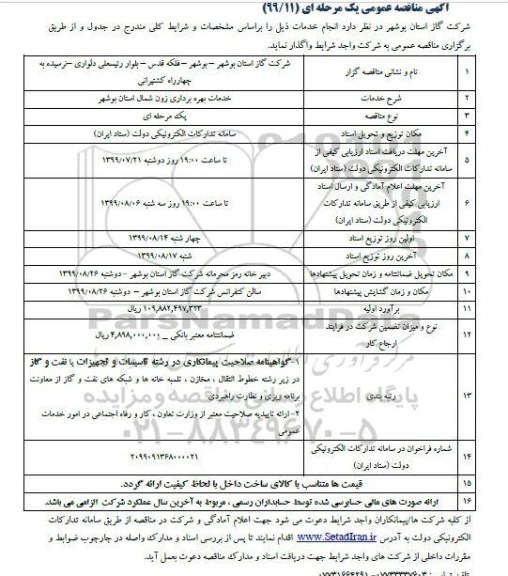 آگهی مناقصه عمومی یک مرحله ای (۹۹/۱۱)
شرکت گاز استان بوشهر در نظر دارد انجام خدمات ذیل را براساس مشخصات و شرایط کلی مندرج در جدول و از طریق
برگزاری مناقصه عمومی به شرکت واجد شرایط واگذار نماید.
۱ نام و نشانی مناقصه گزار شرکت گاز استان بوشهر – بوشهر – فلکه قدس – بلوار رئیسعلی دلواری – نرسیده به
چهارراه کشتیرانی
۲ شرح خدمات خدمات بهره برداری زون شمال استان بوشهر
۳ نوع مناقصه یک مرحله ای
۴ مکان توزیع و تحویل اسناد سامانه تدارکات الکترونیکی دولت (ستاد ایران)
۵ آخرین مهلت دریافت اسناد ارزیابی کیفی از
سامانه تدارکات الکترونیکی دولت (ستاد ایران) تا ساعت ۱۹:۰۰ روز دوشنبه ۱۳۹۹/۰۷/۲۱
۶ آخرین مهلت اعلام آمادگی و ارسال اسناد
ارزیابی کیفی از طریق سامانه تدارکات
الکترونیکی دولت (ستاد ایران) تا ساعت ۱۹:۰۰ روز سه شنبه ۱۳۹۹/۰۸/۰۶
۷ اولین روز توزیع اسناد چهار شنبه ۱۳۹۹/۰۸/۱۴
۸ آخرین روز توزیع اسناد شنبه ۱۳۹۹/۰۸/۱۷
۹ مکان تحویل ضمانتنامه و زمان تحویل پیشنهادها دبیر خانه رمز محرمانه شرکت گاز استان بوشهر – دوشنبه ۱۳۹۹/۰۸/۲۶
۱۰ مکان و زمان گشایش پیشنهادها سالن کنفرانس شرکت گاز استان بوشهر – دوشنبه ۱۳۹۹/۰۸/۲۶
۱۱ برآورد اولیه ۱۰۹,۸۸۲,۴۹۷,۳۲۳ ریال
۱۲ نوع و میزان تضمین شرکت در فرایند
ارجاع کار ضمانتنامه معتبر بانکی _ ۴,۸۹۸,۰۰۰,۰۰۰ ریال
۱۳ رتبه بندی ۱-گواهینامه صلاحیت پیمانکاری در رشته تاسیسات و تجهیزات یا نفت و گاز
در زیر رشته خطوط انتقال ، مخازن ، تلمبه خانه ها و شبکه های نفت و گاز از معاونت
برنامه ریزی و نظارت راهبردی
۲- ارائه تاییدیه صلاحیت معتبر از وزارت تعاون ، کار و رفاه اجتماعی در امور خدمات
عمومی
۱۴ شماره فراخوان در سامانه تدارکات الکترونیکی
دولت (ستاد ایران) ۲۰۹۹۰۹۱۳۶۸۰۰۰۰۲۱
۱۵ قیمت ها متناسب با کالای ساخت داخل با لحاظ کیفیت ارائه گردد.
۱۶ ارائه صورت های مالی حسابرسی شده توسط حسابداران رسمی ، مربوط به آخرین سال عملکرد شرکت الزامی می باشد.
از کلیه شرکت ها/پیمانکاران واجد شرایط دعوت می شود جهت اعلام آمادگی و شرکت در مناقصه از طریق سامانه تدارکات
الکترونیکی دولت به آدرس www.SetadIran.ir اقدام نمایند تا پس از بررسی اسناد و مدارک واصله در چارچوب ضوابط و
مقررات داخلی از شرکت های واجد شرایط جهت دریافت اسناد و مدارک مناقصه دعوت بعمل آید.
ParsNamadData
پایگاه اطلاع رسانی مناقصه و مزایده
۰۲۱-۸۸۳۴۹۶۷۰-۵